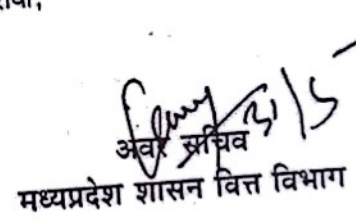 31/5
अवर सचिव
मध्यप्रदेश शासन वित्त विभाग